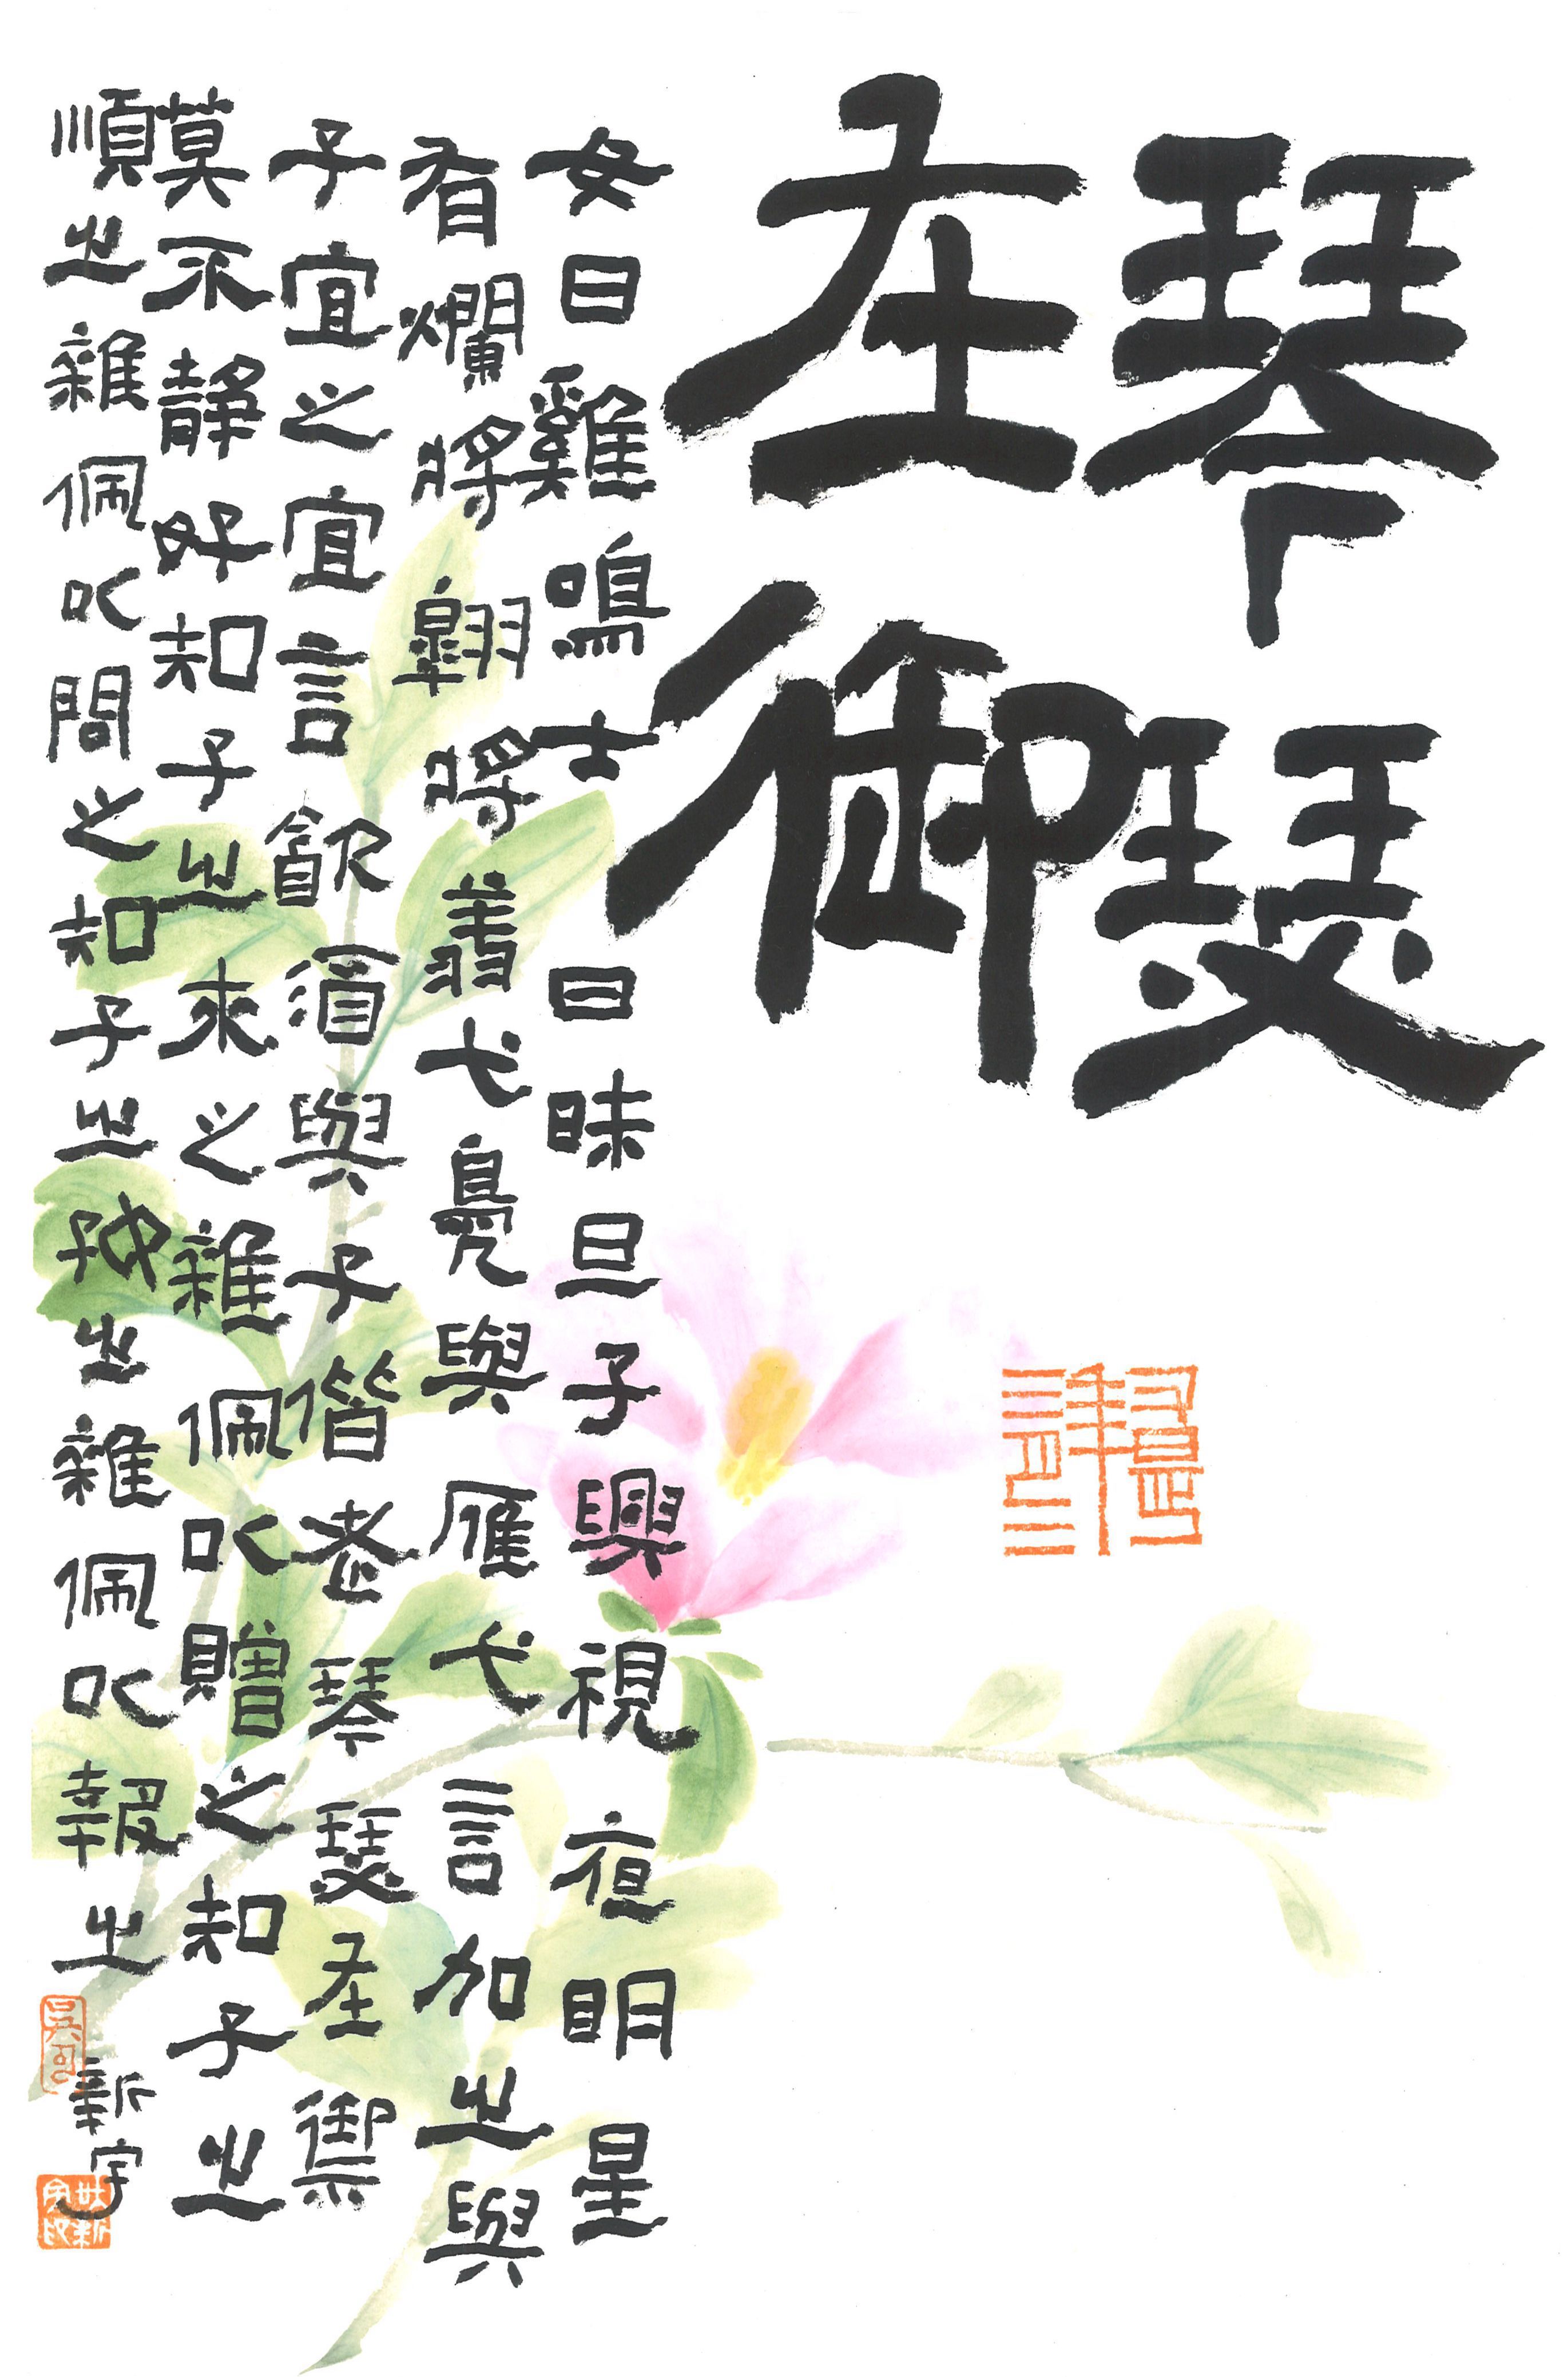 琴瑟
在御
女曰雞鳴士曰昧旦子興視夜明星
有爛將翱將翔弋鳧與雁弋言加之與
子宜之宜言飲酒與子偕老琴瑟在御
莫不靜好知子之來之雜佩以贈之知子之
順之雜佩以問之知子之好之雜佩以報之
新字